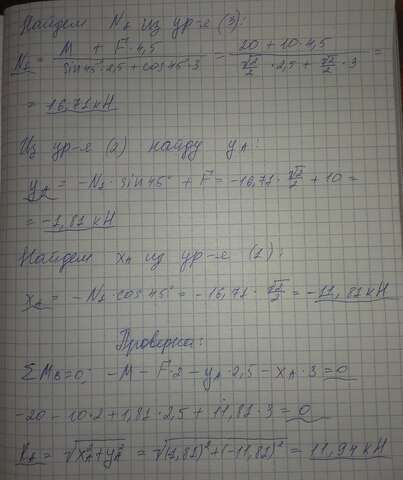 Найдем N₁ из ур-я (3):
N₁ = (M + F·4,5)/(sin45°·2,5 + cos45°·3) = (20 + 10·4,5)/(√2/2·2,5 + √2/2·3) =
= 16,71 кН
Из ур-я (2) найду yA:
yA = -N₁·sin45° + F = -16,71·√2/2 + 10 =
= -1,81 кН
Найдем xA из ур-я (1):
xA = -N₁·cos45° = -16,71·√2/2 = -11,81 кН
Проверка:
ΣMB=0; -M - F·2 - yA·2,5 - xA·3 = 0
-20 - 10·2 + 1,81·2,5 + 11,81·3 = 0
RA = √(xA² + yA²) = √((1,81)² + (-11,81)²) = 11,94 кН